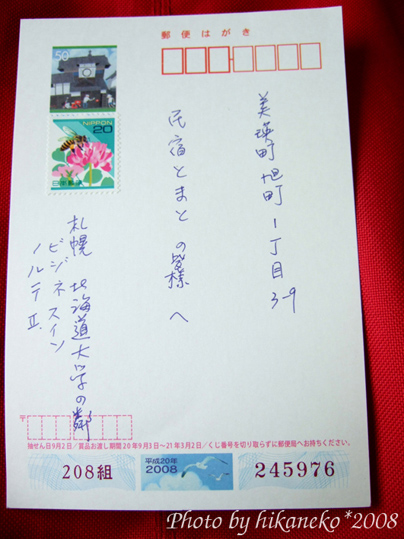 郵便はがき
50
NIPPON
20
日本郵便
美瑛町旭町1丁目
3-9
民宿とまと の皆様 へ
札幌 北海道大学の隣
ビジネスイン
ノルテⅡ
〒
抽せん日9月2日/賞品お渡し期間20年9月3日~21年3月2日/くじ番号を切り取らずに郵便局へお持ちください。
208組
平成20年
2008
245976
Photo by hikaneko*2008